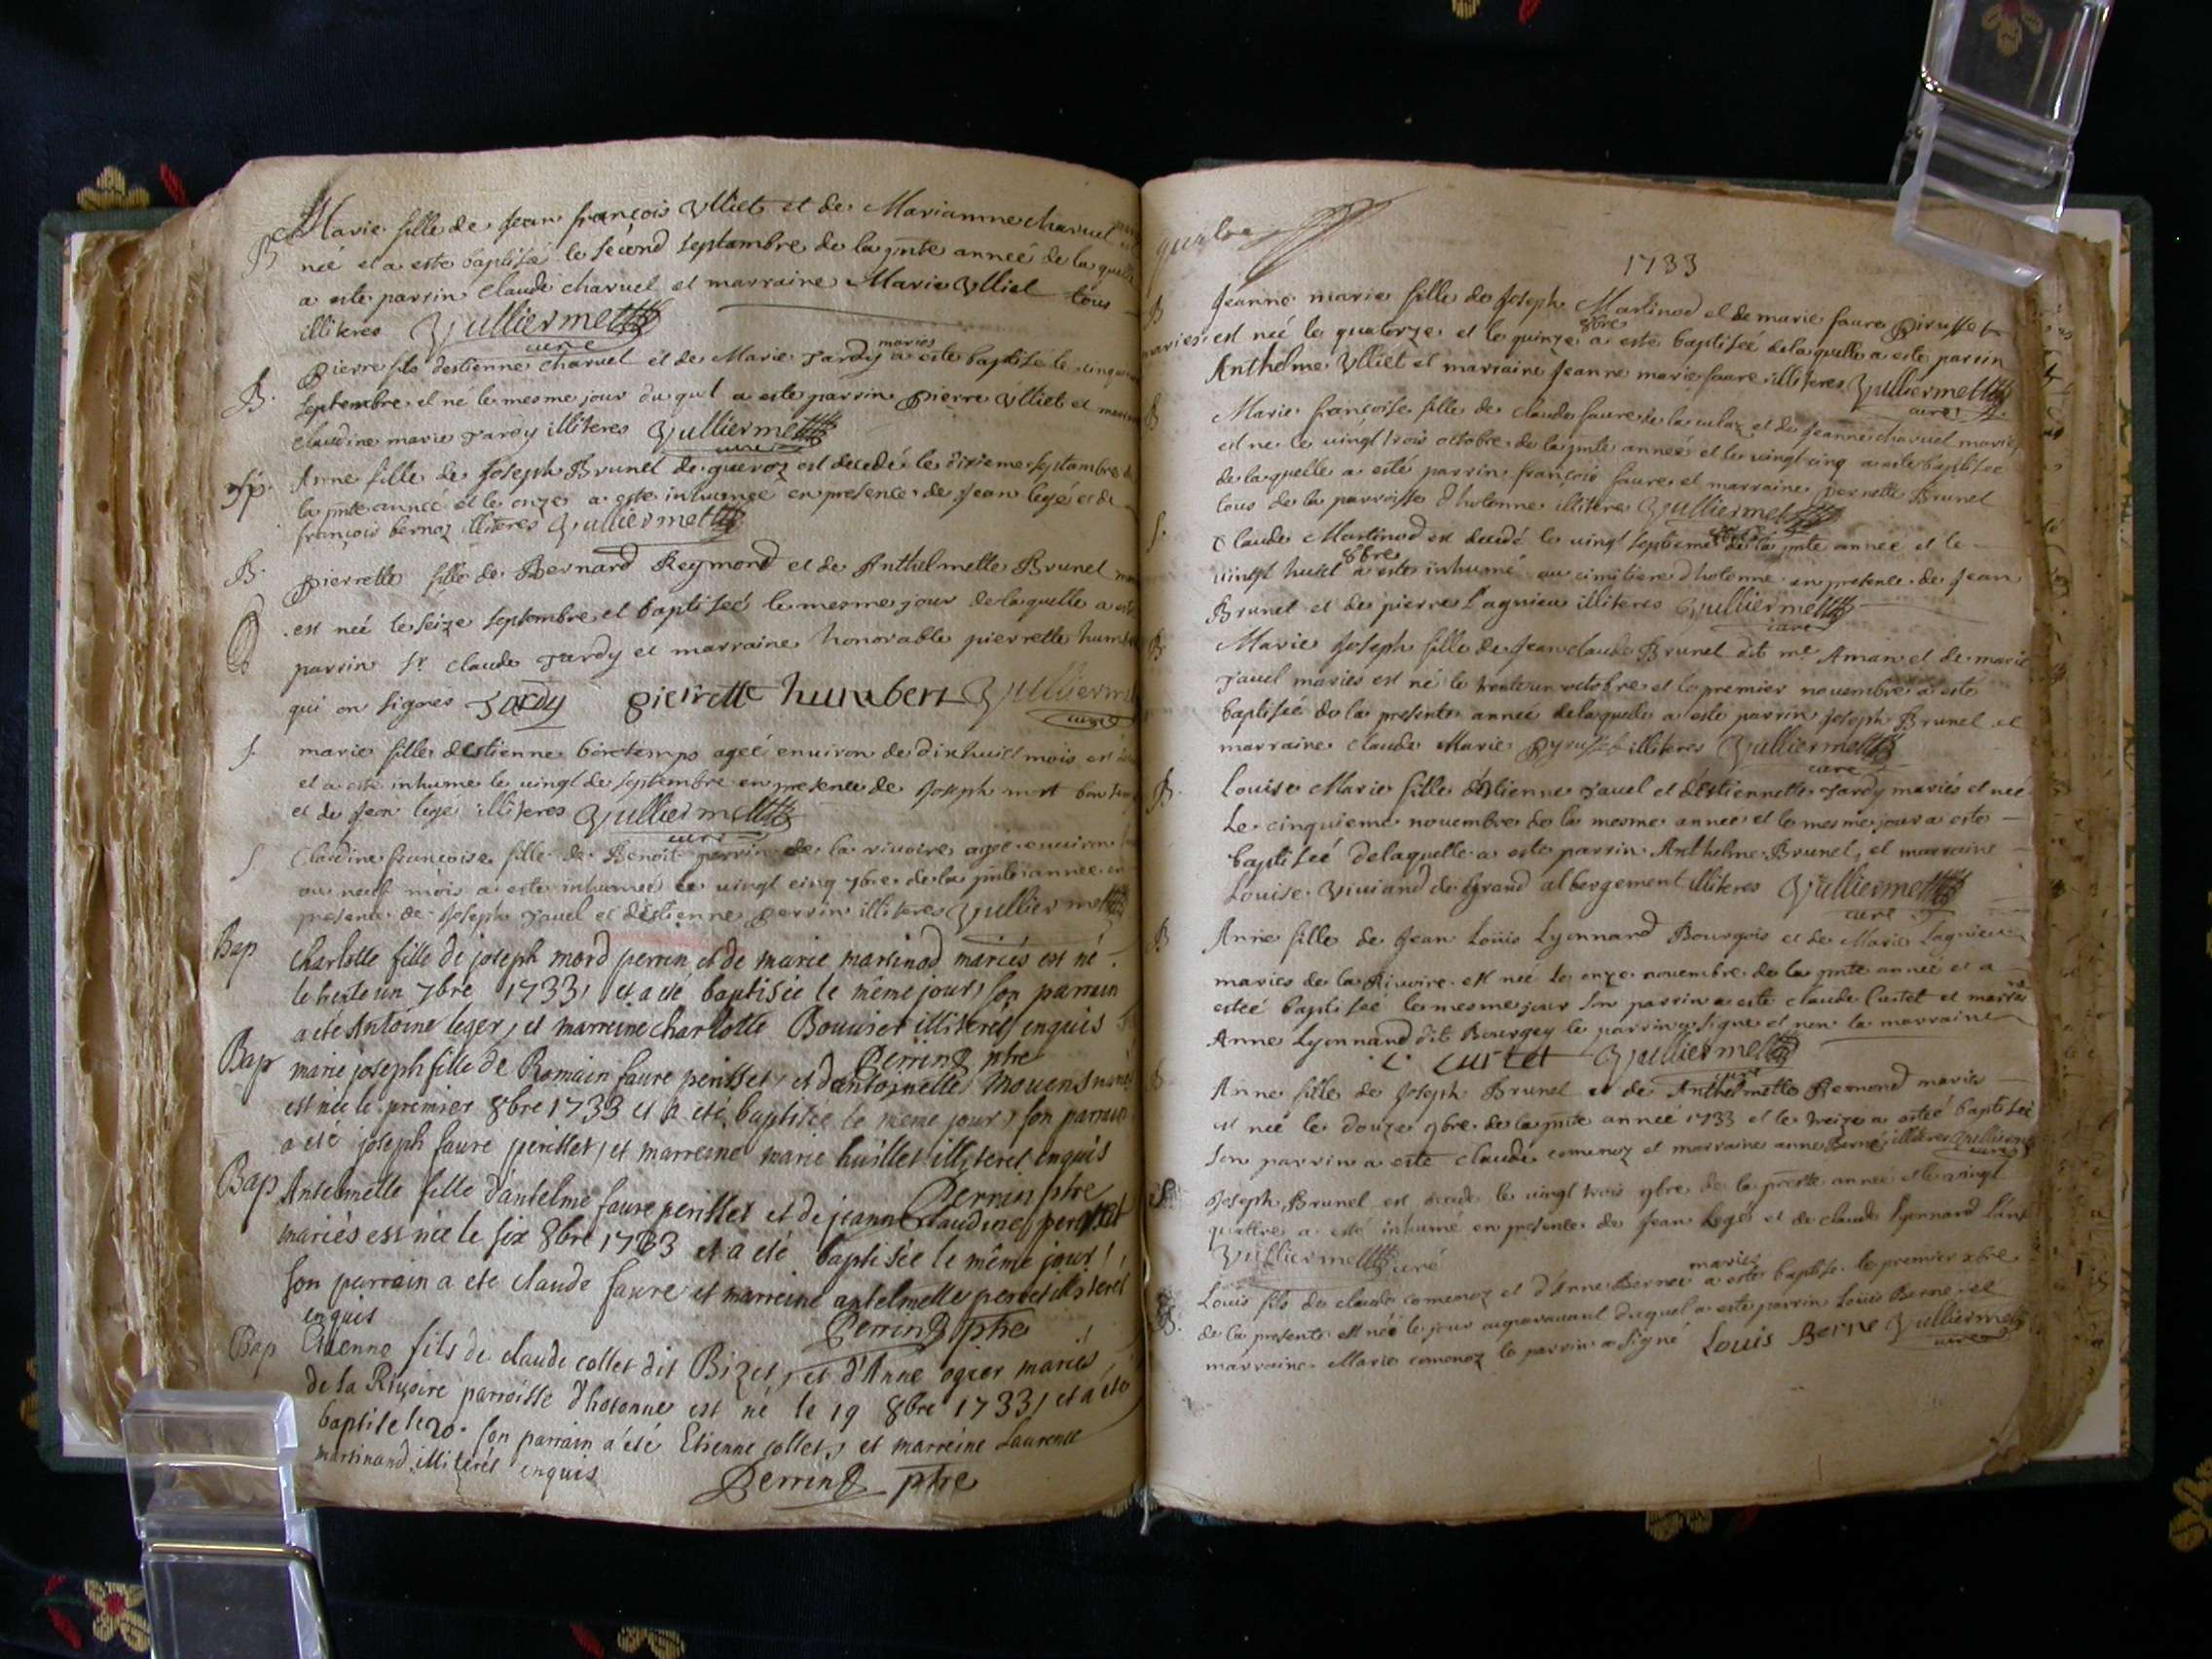 B Marie fille de Jean françois Vlliet et de Marianne charuel
neé et a este baptisée le second septembre de la pnte anneé de la quelle
a este parrin Claude charuel et marraine Marie Vlliet tous
illiteres Vulliermet
curé
B. Pierre fils destienne charuel et de Marie Tardy mariés a este baptisé le
septembre et né le mesme jour du quel a este parrin pierre Vlliet et
claudine marie Tardy illiteres Vulliermet
curé
Anne fille de Joseph Brunet de est decedé le dixieme septambre
la pnte anneé et le onze a este inhumeé en presence de Jean legé et de
françois bernoz illiteres Vulliermet
B. pierrette fille de Bernard Reymond et de Anthelmette Brunet
est neé le seize septembre et baptiseé le mesme jour de laquelle a
parrin Sr claude Tardy et marraine honorable pierrette
qui on signés Tardy pierrette humbert
curé
S. marie fille destienne bontemps ageé enuiron de dixhuict mois est
et a este inhume le vingt de septembre en presence de Joseph
et de Jean legé illiteres Vulliermet
curé
S Claudine francoise fille de Benoit perrin de la riuoire ageé enuiron
ou neuf mois a este inhumeé le vingt cinq 7bre de la pnte annee en
presence de Joseph Jauel et destienne perrin illiteres Vulliermet
Bap charlotte fille de joseph mord perrin et de marie martinod mariés est né
le trente un 7bre 1733, et a été baptisée le même jour, son parrain
a été Antoine leger, et marreine charlotte Bouvier illiteréz enquis
Perrin ptre
Bap marie joseph fille de Romain faure perisset, et dantoinette
est née le premier 8bre 1733 et a été baptisée le même jour, son parrain
a été joseph faure perisset, et marreine marie illiteréz enquis
Perrin ptre
Bap Antelmette fille d'antelme faure perisset et de jeanne claudine
mariés est née le six 8bre 1733 et a été baptisée le même jour,
son parrain a été claude faure et marreine antelmette
enquis
Perrin ptre
Bap Etienne fils de claude collet dit Bizet, et d'Anne ogier mariés
de la Rivoire parroisse d'hotonne est né le 19 8bre 1733, et a été
baptisé le 20. son parrain a été Etienne collet, et marreine Laurence
martinand, illiteréz enquis
Perrin ptre
quatre
1733
B Jeanne marie fille de Joseph Martinod et de marie faure
mariés est neé le quatorze et le quinze 8bre a este baptiseé de laquelle a este parrin
Anthelme Vlliet et marraine Jeanne marie faure illiteres Vulliermet
curé
B Marie françoise fille de claude faure de la culaz et de Jeanne charuel mariés
est ne le vingt trois octobre de la pnte anneé et le vingt cinq a este baptisee
de laquelle a esté parrin françois faure et marraine pernette Brunet
tous de la parroisse d'hotonne illiteres Vulliermet
S. Claude Martinod est decedé le vingt septieme de la pnte anneé et le
vingt huict 8bre a este inhumé au cimitiere d'hotonne en presence de Jean
Brunet et de pierre Lagnieu illiteres Vulliermet
curé
B Marie Joseph fille de Jean claude Brunet dit me Aman et de marie
Jauel mariés est né le trente un octobre et le premier nouembre a esté
baptiseé de la presente anneé de laquelle a este parrin Joseph Brunet et
marraine claude Marie illiteres Vulliermet
curé
B. Louise Marie fille destienne Jauel et destiennette Tardy mariés et neé
Le cinquieme nouembre de la mesme annee et le mesme jour a este
baptiseé delaquelle a este parrin Anthelme Brunet, et marraine
Louise Viuiand de grand albergement illiteres Vulliermet
curé
B Anne fille de Jean Loüis Lyonnard Bourgois et de Marie Lagnieu
mariés de la Riuoire est neé le onze nouembre de la pnte anneé et a
esteé baptiseé le mesme jour son parrin a este claude Curtet et marrne
Anne Lyonnard dit Bourgey le parrin a signe et non la marraine
C. Curtet Vulliermet
curé
Anne fille de Joseph Brunet et de Anthelmette Remond mariés
est neé le douze 9bre de la pnte anneé 1733 et le treize a esteé baptiseé
son parrin a esté claude comenoz et marraine anne Berne illiteres Vulliermet
curé
S. Joseph Brunet est decedé le vingt trois 9bre de la presente anneé et le vingt
quattre a esté inhumé en presence de Jean Legé et de claude Lyonnard
Vulliermet curé
B. Louis fils de claude comenoz et d'Anne Bernee mariés a este baptisé le premier xbre
de la presente et neé le jour auparauant duquel a este parrin Loüis Berne et
marraine Marie comenoz le parrin a signé Louis Berne Vulliermet
curé